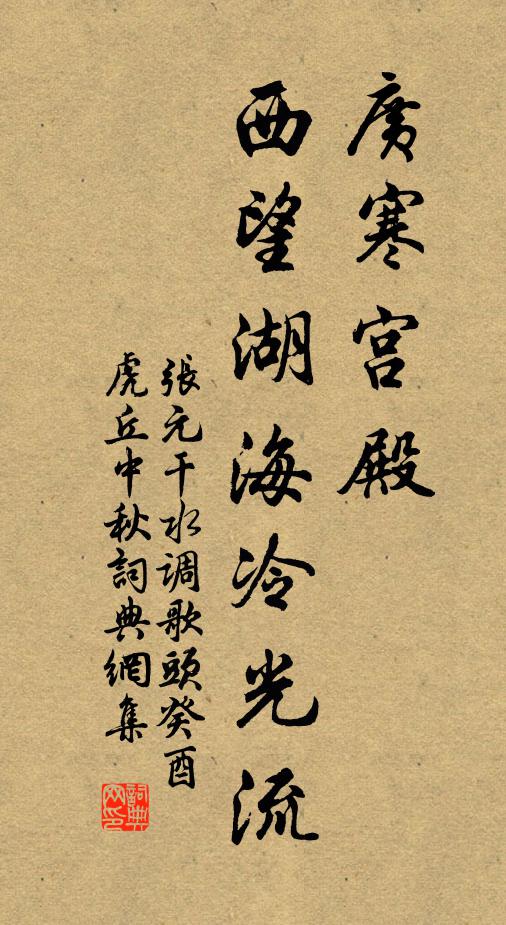 廣寒宮殿
西望湖海冷光流
張元干水调歌頭癸酉
虎丘中秋詞典網集
詞典
网印